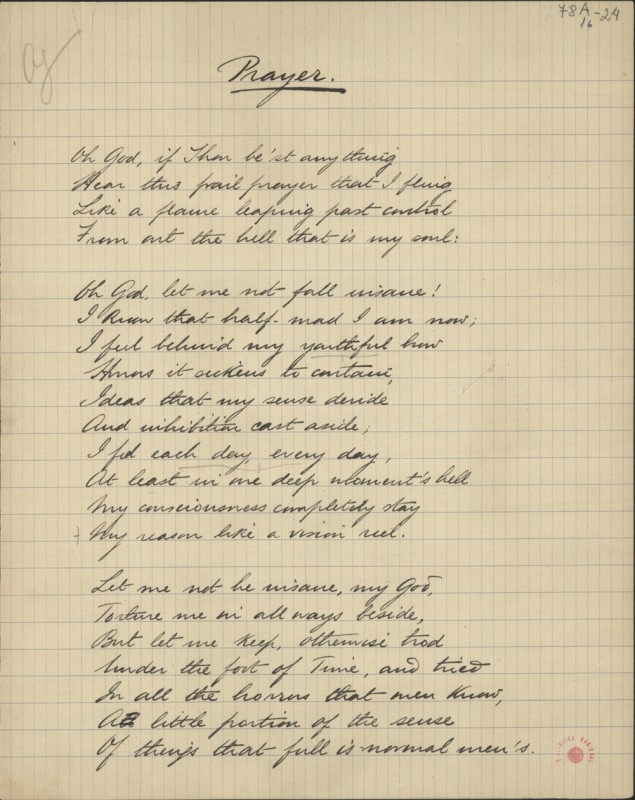 78A-24
16
Prayer.
Oh God, if Thou be'st anything
Hear this frail prayer that I fling
Like a flame leaping past control
From out the hell that is my soul:
Oh God, let me not fall insane!
I know that half-mad I am now;
I feel behind my youthful brow
Horrors it sickens to contain,
Ideas that my sense deride
And inhibition cast aside;
I feel each day, every day,
At least in one deep moment's hell
My consciousness completely stay
My reason like a vision reel.
Let me not be insane, my God,
Torture me in all ways beside,
But let me keep, otherwise trod
Under the foot of Time, and tried
In all the horrors that men know,
A little portion of the sense
Of things that full is normal men's.